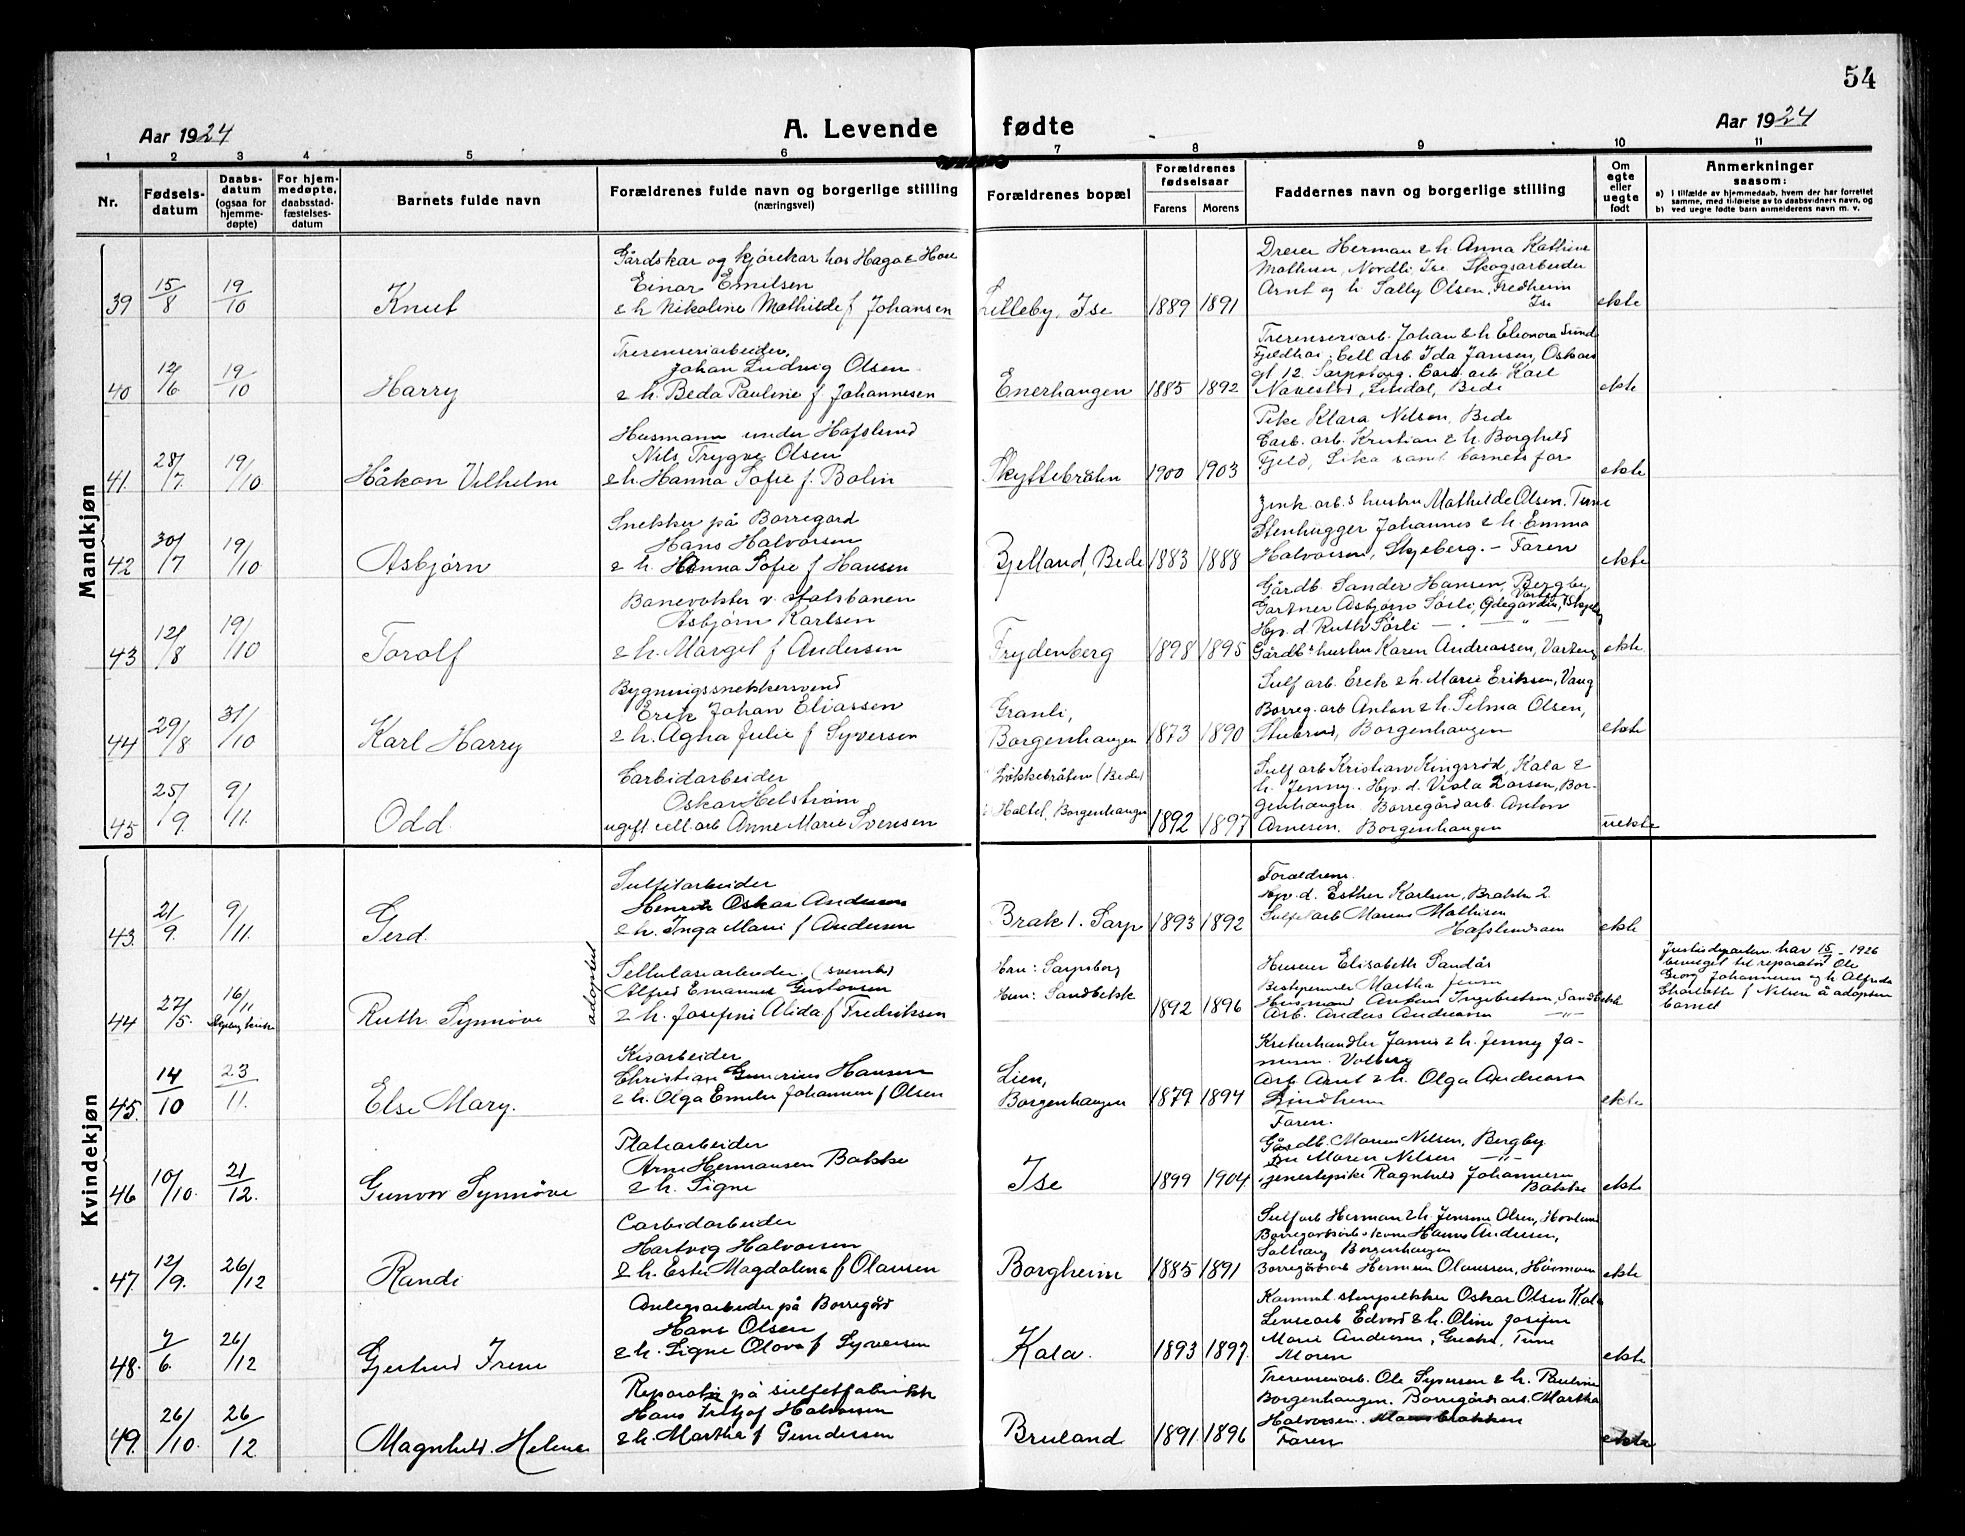 54
Aar 1924
A. Levende fødte
Aar 1924
1 2 3 4 5 6 7 8 9 10 11
Nr.
Fødselsdatum
Daabsdatum (ogsaa for hjemmedøpte)
For hjemmedøpte, daabsstadfæstelsesdatum
Barnets fulde navn
Forældrenes fulde navn og borgerlige stilling
(næringsvei)
Forældrenes bopæl
Forældrenes fødselsaar
Farens Morens
Faddernes navn og borgerlige stilling
Om egte eller uegte født
Anmerkninger
saasom:
a) I tilfælde av hjemmedaab, hvem der har forrettet samme, med tilføielse av to daabsvidners navn, og
b) ved uegte fødte barn anmelderens navn m. v.
Mandkjøn
39 15/8 19/10 Knut
Gårdskar og kjørekar hos Haga &
Einar Emilsen
& h. Nikoline Mathilde f Johansen
Lilleby, Ise 1889 1891
Dreier Herman & h. Anna Kathine
Mathisen, Nordli Ise Skogsarbeider
Arnt og h Sally Olsen, Fredheim
Ise
ekte
40 12/6 19/10 Harry
Træsenseriarbeider,
Johan Ludvig Olsen
& h. Beda Pauline f Johannesen
Enerhaugen 1885 1892
Johan & h Eleonora
Ida Jansen, Oskars
gt 12. Sarpsborg. Carb arb Karl
Navestad, Lindal, Bede
ekte
41 28/7. 19/10 Håkon Vilhelm
Husmann under Hafslund
Nils Trygve Olsen
& h. Hanna Sofie f. Bolin
Skyttebråten 1900 1903
Pike Klara Nilsen, Bede
Carb. arb. Kristian & h. Borghild
Fjeld, Lika samt barnets far
ekte
42 30/7 19/10 Asbjørn
Snekker på Borregård
Hans Halvorsen
& h. Hanna Sofie f Hansen
Bjelland, Bede 1883 1888
Zink arb.s hustru Mathilde Olsen. Tune
Stenhugger Johannes & h. Emma
Halvorsen, Skjeberg. – Faren
ekte
43 12/8 19/10 Torolf
Banevokter v. statsbanen
Asbjørn Karlsen
& h. Margit f Andersen
Frydenberg 1898 1895
Gårdb. Sander Hansen, Bergby
Gartner Asbjørn Sørli, Ødegården,
Hp. d Ruth Sørli
Gårdb.s hustru Karen Andreassen, Varteig
ekte
44 29/8 31/10 Karl Harry
Bygningssnekkersvend
Erik Johan Eliassen
& h. Agna Julie f Syversen
Granli,
Borgenhaugen 1873 1890
Sulf arb. Erik & h. Marie Eriksen, Vang
Borreg. arb Anton & h. Selma Olsen,
Borgenhaugen
ekte
45 25/9. 9/11. Odd.
Carbidarbeider
Oskar Helstrøm
ugift cell. arb Anne Marie Svensen
Løkkebråten (Bede)
Holtet, Borgenhaugen 1892 1897
Sulf arb Kristian Kingsrød, Kala &
h. Jenny. Hp. d. Viola Larsen, Bor-
genhaugen Borregårdarb. Anton
Arnesen. Borgenhaugen
uekte
Kvindekjøn
43. 21/9. 9/11. Gerd.
Sulfitarbeider
Henrik Oskar Andersen
& h. Inga Marie f Andersen
Brak 1. Sarp 1893 1892
Forældrene.
Hp. d. Esther Karlsen, Brakke 2
Sulfitarb Marius Mathisen
Hafslundsøen
ekte
44 27/5. 16/11 Ruth Synnøve
adoptert
Cellulosearbeider. (svensk)
Alfred Emanuel Gustavsen
& h. Josefine Alida f Fredriksen
Han: Sarpsborg
Hun: Sandbekk 1892 1896
Husmor Elisabeth Sandås
Bestyrerinde Martha Jensen
Husmand Anders Ingebretsen, Sandbekk
Arb. Anders Andreassen —"—
Justisdeparten har 15/ - 1926
bevilget til reparatør Ole
Georg Johannesen og h. Alfrida
Charlotte f Nilsen å adoptere
barnet
45. 14/10 23/11. Else Mary.
Kisarbeider
Christian Gunerius Hansen
& h. Olga Emilie Johannesen f Olsen
Lien,
Borgenhaugen 1879 1894
& h. Jenny Ja-
Arb. Arnt & h. Olga Andreassen
Lindheim
Faren.
ekte
46 10/10. 21/12. Gunvor Synnøve
Platearbeider
Arne Hermansen Bakke
& h. Signe
Ise 1899 1904
Gårdb. Maren Nilsen, Bergby
Maren Nilsen —"—
tjenestepike Ragnhild Johannesen
Bakke
ekte
47. 12/9. 26/12 Randi
Carbidarbeider
Hartvig Halvorsen
& h. Ester Magdalena f Olausen
Borgheim 1885 1891
Sulfarb Herman & h. Jensine Olsen, Hovland
Hanna Andersen,
Solhaug Borgenhaugen
Borregårdsarb Herman Olaussen,
ekte
48. 7/6. 26/12 Gertrud Irene
Anlegsarbeider på Borregård
Hans Olsen
& h. Signe Olova f Syversen
Kala. 1893 1897.
Oskar Olsen Kala
Edvard & h. Oline Josefine
Marie Andersen, Greåker, Tune
Moren
ekte
49. 26/10. 26/12 Magnhild Helene
Reparatør på sulfitfabrikk
Hans Fritjof Halvorsen
& h. Martha f Gundersen
Bruland 1891 1896
Ole Syversen & h. Pauline
Borgenhaugen. Borregårdsarb. Martha
Halvorsen.
Faren
ekte